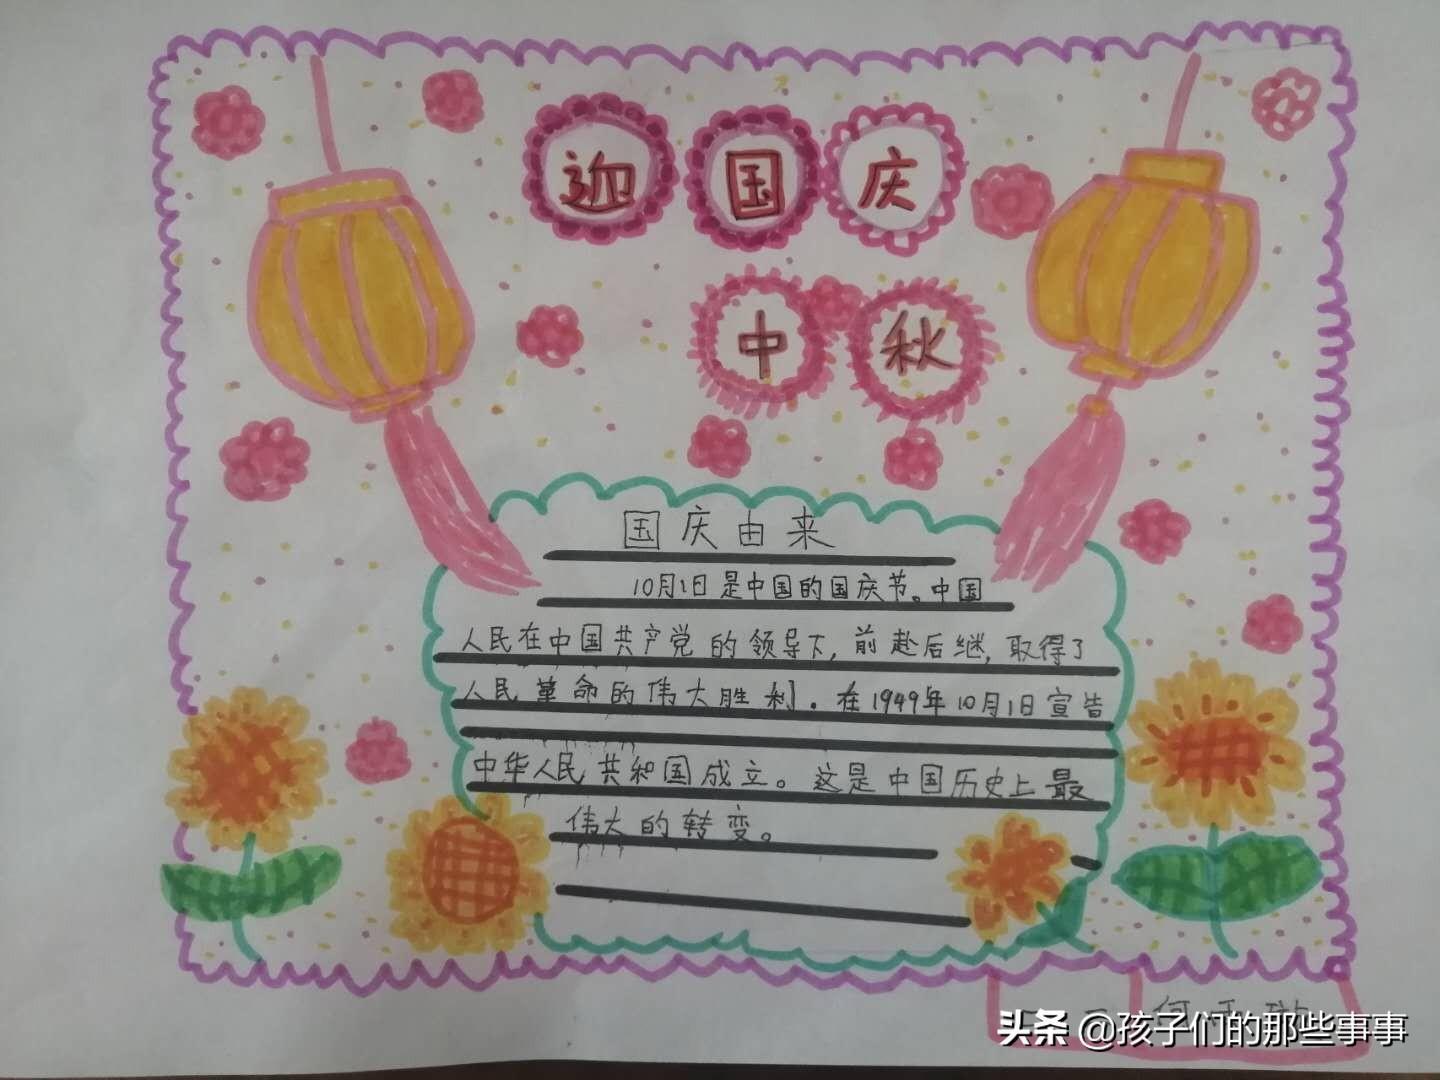 迎国庆
中秋
国庆由来
10月1日是中国的国庆节。中国
人民在中国共产党的领导下,前赴后继,取得了
人民革命的伟大胜利.在1949年10月1日宣告
中华人民共和国成立。这是中国历史上最
伟大的转变。
头条 @孩子们的那些事事